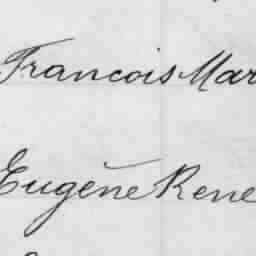 Francois Mar
Eugène Rene